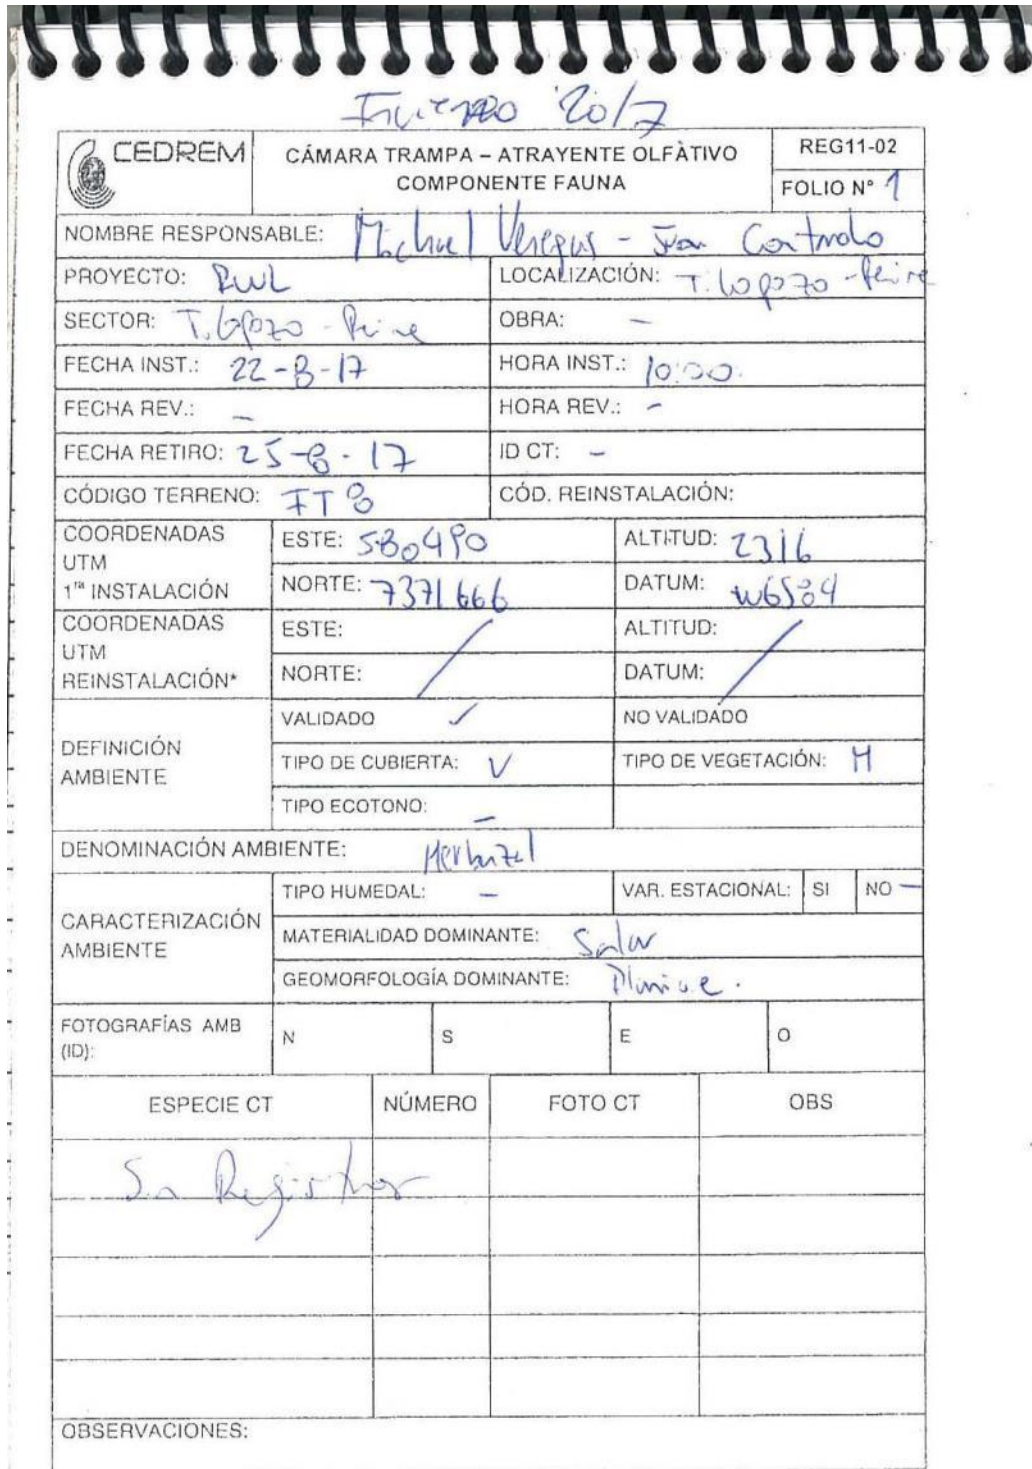 Invierno 2017
CEDREM
CÁMARA TRAMPA – ATRAYENTE OLFÀTIVO
COMPONENTE FAUNA
REG11-02
FOLIO N° 1
NOMBRE RESPONSABLE: Michael Venegas -
PROYECTO: RWL
LOCALIZACIÓN: T. Lopozo - Peine
SECTOR: T. Lopozo - Peine
OBRA: -
FECHA INST.: 22-8-17
HORA INST.: 10:00
FECHA REV.: -
HORA REV.: -
FECHA RETIRO: 25-8-17
ID CT: -
CÓDIGO TERRENO: FT8
CÓD. REINSTALACIÓN:
COORDENADAS
UTM
1ra INSTALACIÓN
ESTE: 580490
ALTITUD: 2316
NORTE: 7371666
DATUM: WGS84
COORDENADAS
UTM
REINSTALACIÓN*
ESTE:
ALTITUD:
NORTE:
DATUM:
DEFINICIÓN
AMBIENTE
VALIDADO ✓
NO VALIDADO
TIPO DE CUBIERTA: V
TIPO DE VEGETACIÓN: H
TIPO ECOTONO: -
DENOMINACIÓN AMBIENTE: Herbazal
CARACTERIZACIÓN
AMBIENTE
TIPO HUMEDAL: -
VAR. ESTACIONAL: SI NO -
MATERIALIDAD DOMINANTE: Salar
GEOMORFOLOGÍA DOMINANTE: Planicie.
FOTOGRAFÍAS AMB
(ID):
N S E O
ESPECIE CT NÚMERO FOTO CT OBS
Sin Registros
OBSERVACIONES: